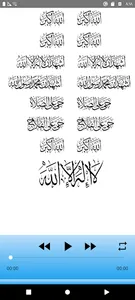 8:35
الله أكبر الله أكبر
الله أكبر الله أكبر
أشهد أن لا إله إلا الله أشهد أن لا إله إلا الله
أشهد أن محمدا رسول الله أشهد أن محمدا رسول الله
حي على الصلاة حي على الصلاة
حي على الفلاح حي على الفلاح
الله أكبر الله أكبر
لا إله إلا الله
00:00 00:00